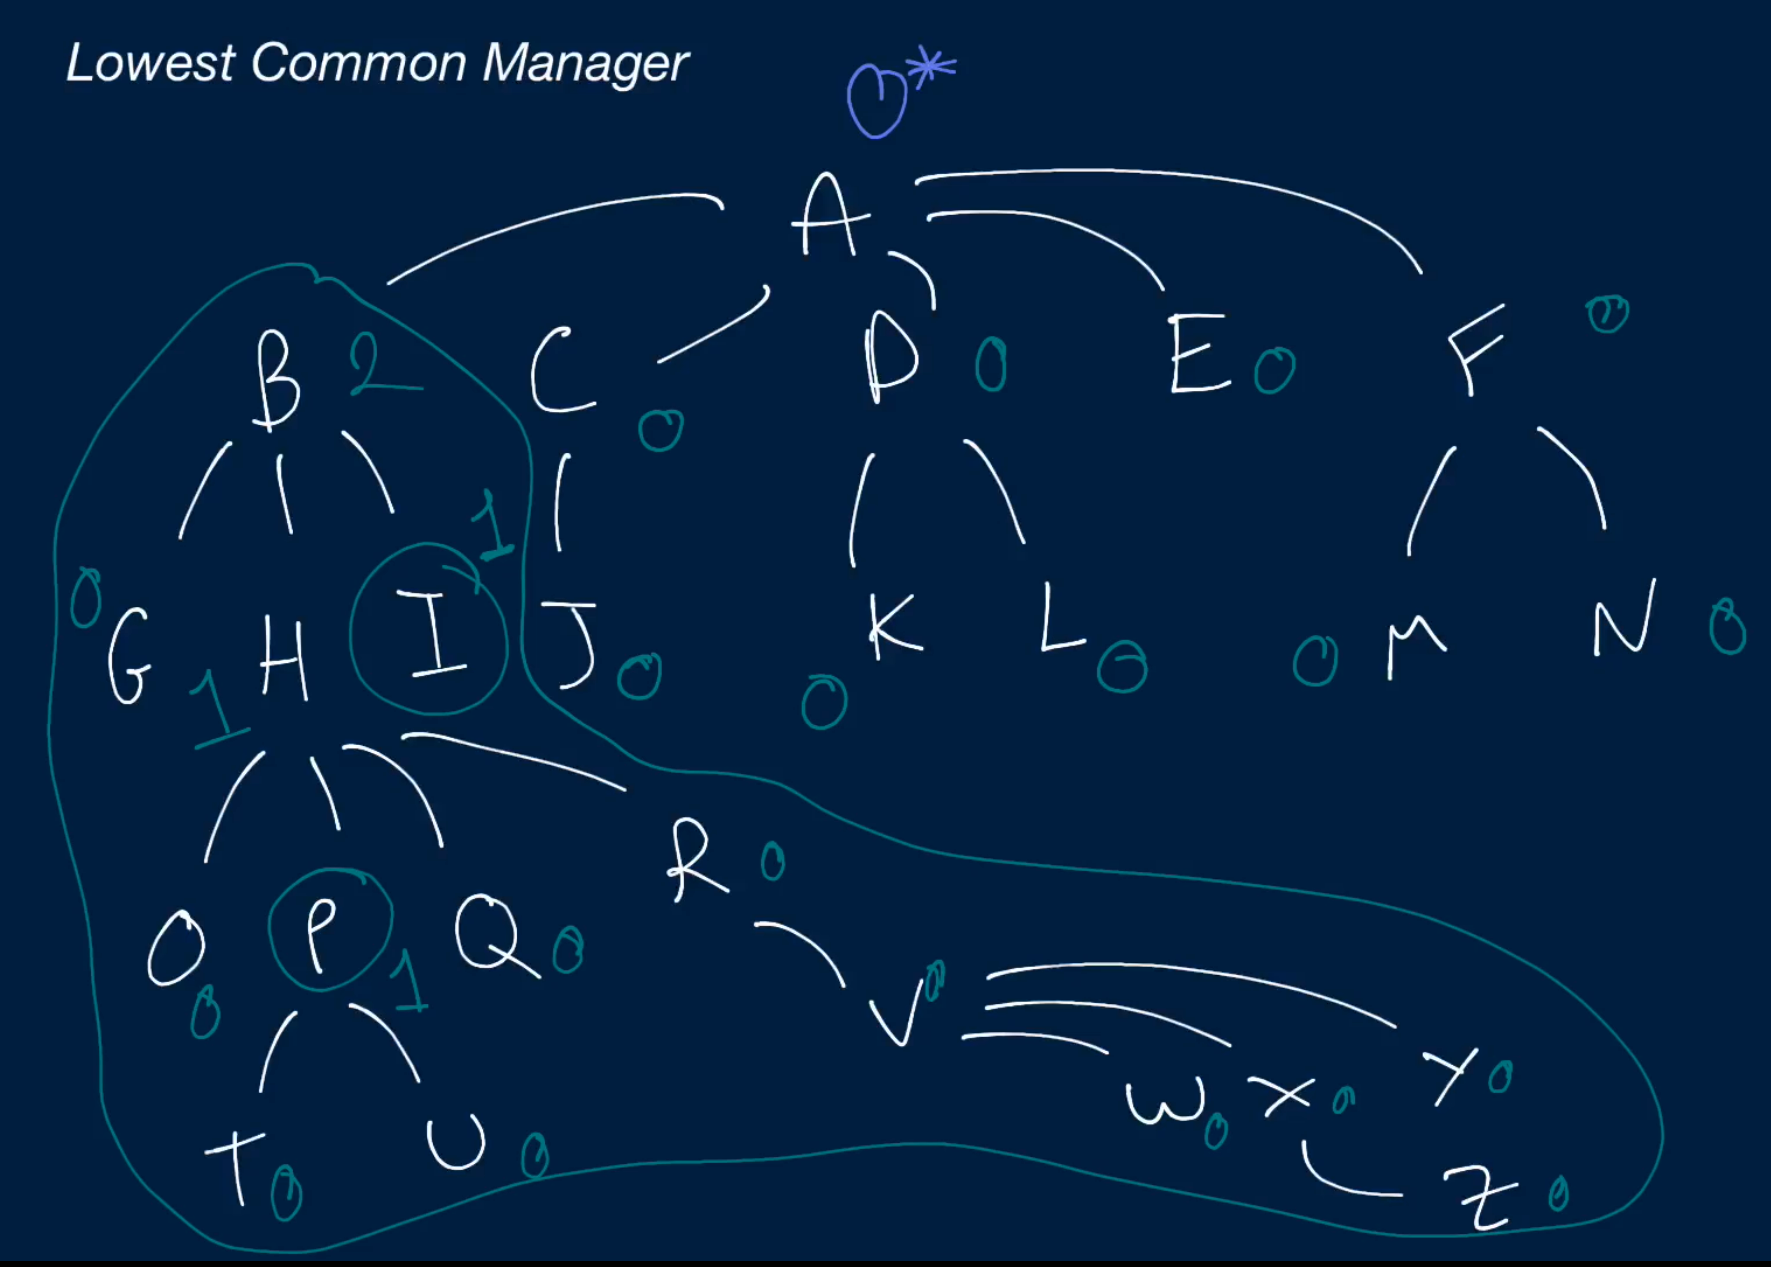 Lowest Common Manager
O*
A
B 2 C 0 D 0 E 0 F 0
0 G 1 H I 1 J 0 0 K L 0 0 M N 0
O 0 P 1 Q 0 R 0
T 0 U 0 V 0 W 0 X 0 Y 0
Z 0